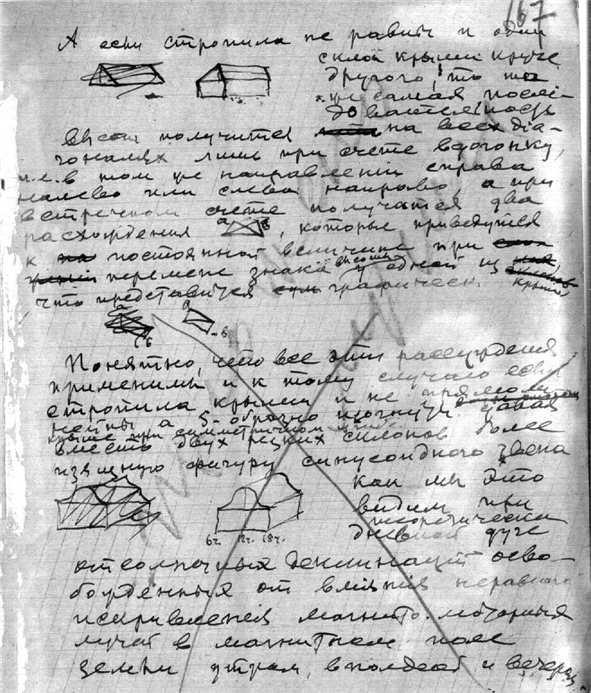 167
А если стропила не равны и один
склон крыши круче
другого, то та
же самая после-
довательность
высот получится на всех диа-
гоналях лишь при счете вдогонку,
т.е. в том же направлении справа
налево или слева направо, а при
встречном счете получатся два
расхождения а в, которые приведутся
к постоянной величине при
перемене знака высоты у одной из
что представится графически. крыш
а а
б -б
Понятно, что все эти рассуждения
применимы и к тому случаю если
стропила крыши и не прямоли-
нейны а S-образно изогнуты, давая
крыше при симметричном
вместо двух резких склонов более
изящную фигуру синусоидного звена
как мы это
видим при
теоретически
дневной дуге
6ч. 12ч. 18ч.
от солнечных деклинаций осво-
божденныя от влиянiя неравнаго
искривленiя магнито-моторныя
лучей в магнитном поле
земли утром, в полдень и вечером